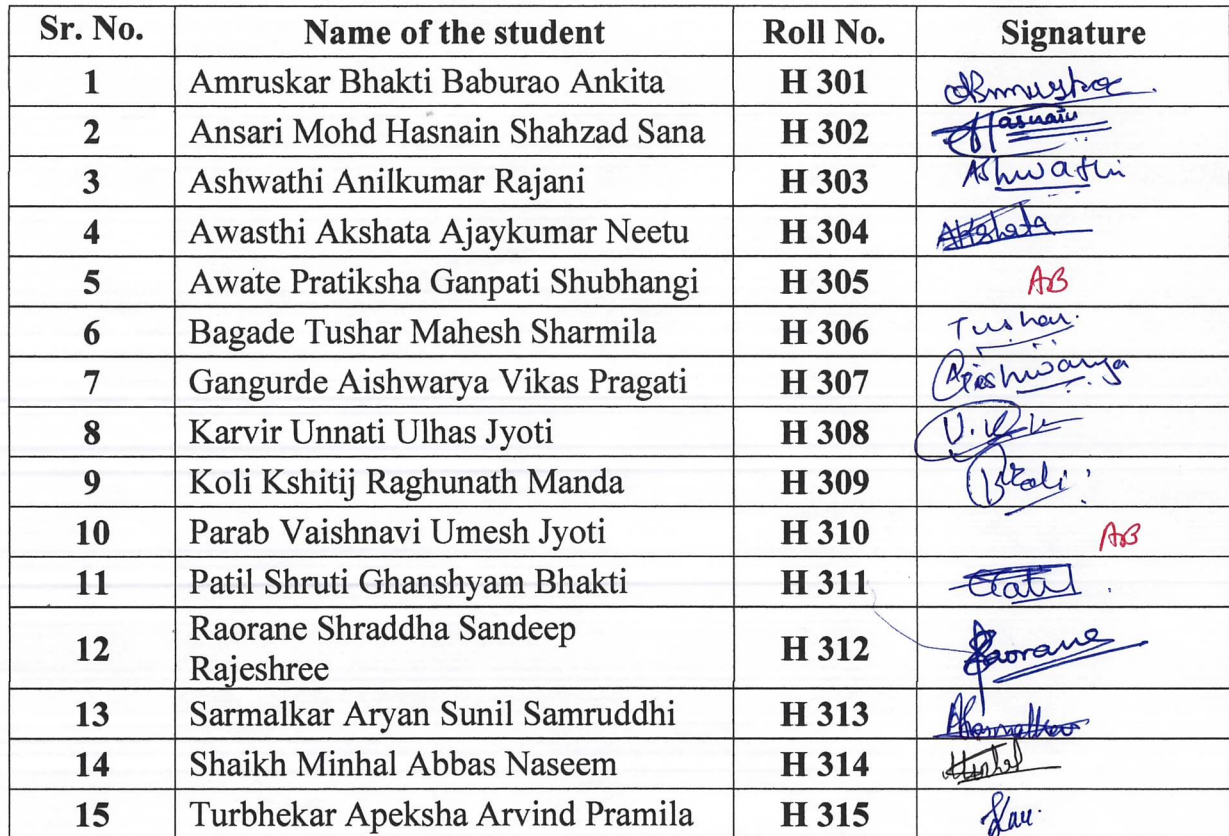 Sr. No. Name of the student Roll No. Signature
1 Amruskar Bhakti Baburao Ankita H 301
2 Ansari Mohd Hasnain Shahzad Sana H 302 Hasnain
3 Ashwathi Anilkumar Rajani H 303 Ashwathi
4 Awasthi Akshata Ajaykumar Neetu H 304 Akshata
5 Awate Pratiksha Ganpati Shubhangi H 305 AB
6 Bagade Tushar Mahesh Sharmila H 306 Tushar.
7 Gangurde Aishwarya Vikas Pragati H 307 Aishwarya
8 Karvir Unnati Ulhas Jyoti H 308
9 Koli Kshitij Raghunath Manda H 309
10 Parab Vaishnavi Umesh Jyoti H 310 AB
11 Patil Shruti Ghanshyam Bhakti H 311
12 Raorane Shraddha Sandeep
Rajeshree H 312 Raorane
13 Sarmalkar Aryan Sunil Samruddhi H 313
14 Shaikh Minhal Abbas Naseem H 314
15 Turbhekar Apeksha Arvind Pramila H 315